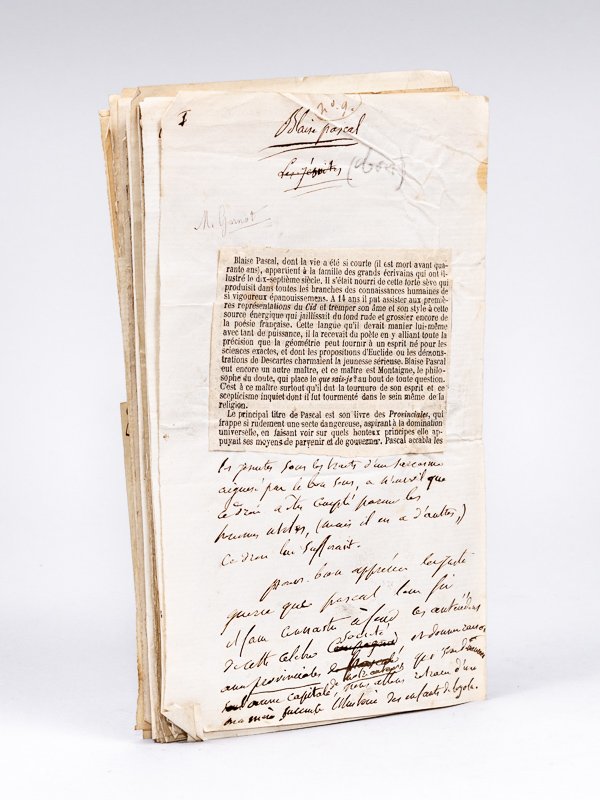 I
no. 9.
Blaise pascal
Les jésuites (bon)
M. Garnot
Blaise Pascal, dont la vie a été si courte (il est mort avant qua-
rante ans), appartient à la famille des grands écrivains qui ont il-
lustré le dix-septième siècle. Il s'était nourri de cette forte sève qui
produisit dans toutes les branches des connaissances humaines de
si vigoureux épanouissemens. A 14 ans il put assister aux premiè-
res représentations du Cid et tremper son âme et son style à cette
source énergique qui jaillissait du fond rude et grossier encore de
la poésie française. Cette langue qu'il devait manier lui-même
avec tant de puissance, il la recevait du poète en y alliant toute la
précision que la géométrie peut fournir à un esprit né pour les
sciences exactes, et dont les propositions d'Euclide ou les démons-
trations de Descartes charmaient la jeunesse sérieuse. Blaise Pascal
eut encore un autre maître, et ce maître est Montaigne, le philo-
sophe du doute, qui place le que sais-je? au bout de toute question.
C'est à ce maître surtout qu'il dut la tournure de son esprit et ce
scepticisme inquiet dont il fut tourmenté dans le sein même de la
religion.
Le principal titre de Pascal est son livre des Provinciales, qui
frappe si rudement une secte dangereuse, aspirant à la domination
universelle, en faisant voir sur quels honteux principes elle ap-
puyait ses moyens de parvenir et de gouverner. Pascal accabla les
les jésuites sous les traits d'un sarcasme
aiguisé par le bon sens,
ce droit a être compté parmi les
hommes utiles, (mais il en a d'autres,)
ce droit lui suffirait.
pour bien apprécier la juste
guerre que pascal leur fit
il faut connaître à fond les antécédents
de cette célèbre Société et donner
aux provinciales
oeuvre capitale, nous allons
l'histoire des enfants de loyola.